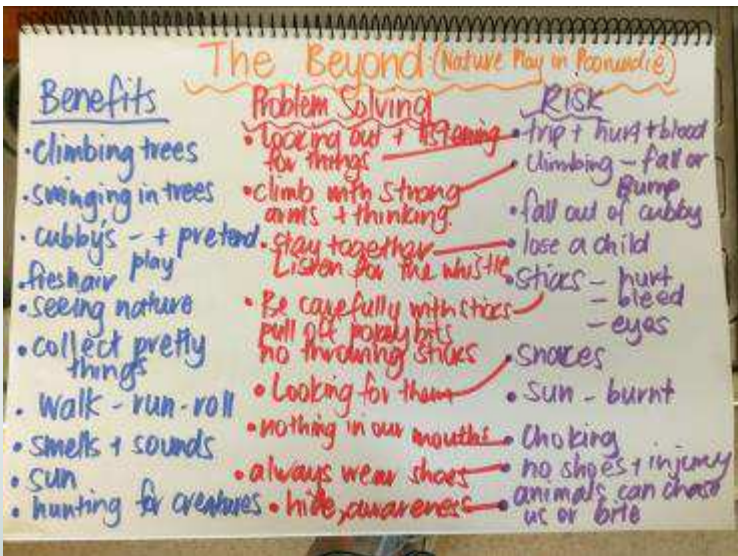 The Beyond (Nature Play in Poonindie)
Benefits
• climbing trees
• swinging in trees
• cubby's - + pretend
play
• fresh air
• seeing nature
• collect pretty
things
• walk - run - roll
• smells + sounds
• sun
• hunting for creatures
Problem Solving
• Looking out + listening
for things
• climb with strong
arms + thinking.
• stay together
Listen for the whistle
• Be carefully with sticks
pull off pokey bits
no throwing sticks
• Looking for them
• nothing in our mouths
• always wear shoes
• hide, awareness
RISK
• trip + hurt + blood
• climbing - fall or
Bump
• fall out of cubby
• lose a child
• sticks - hurt
- bleed
- eyes
• snakes
• sun - burnt
• choking
• no shoes + injury
• animals can chase
us or bite